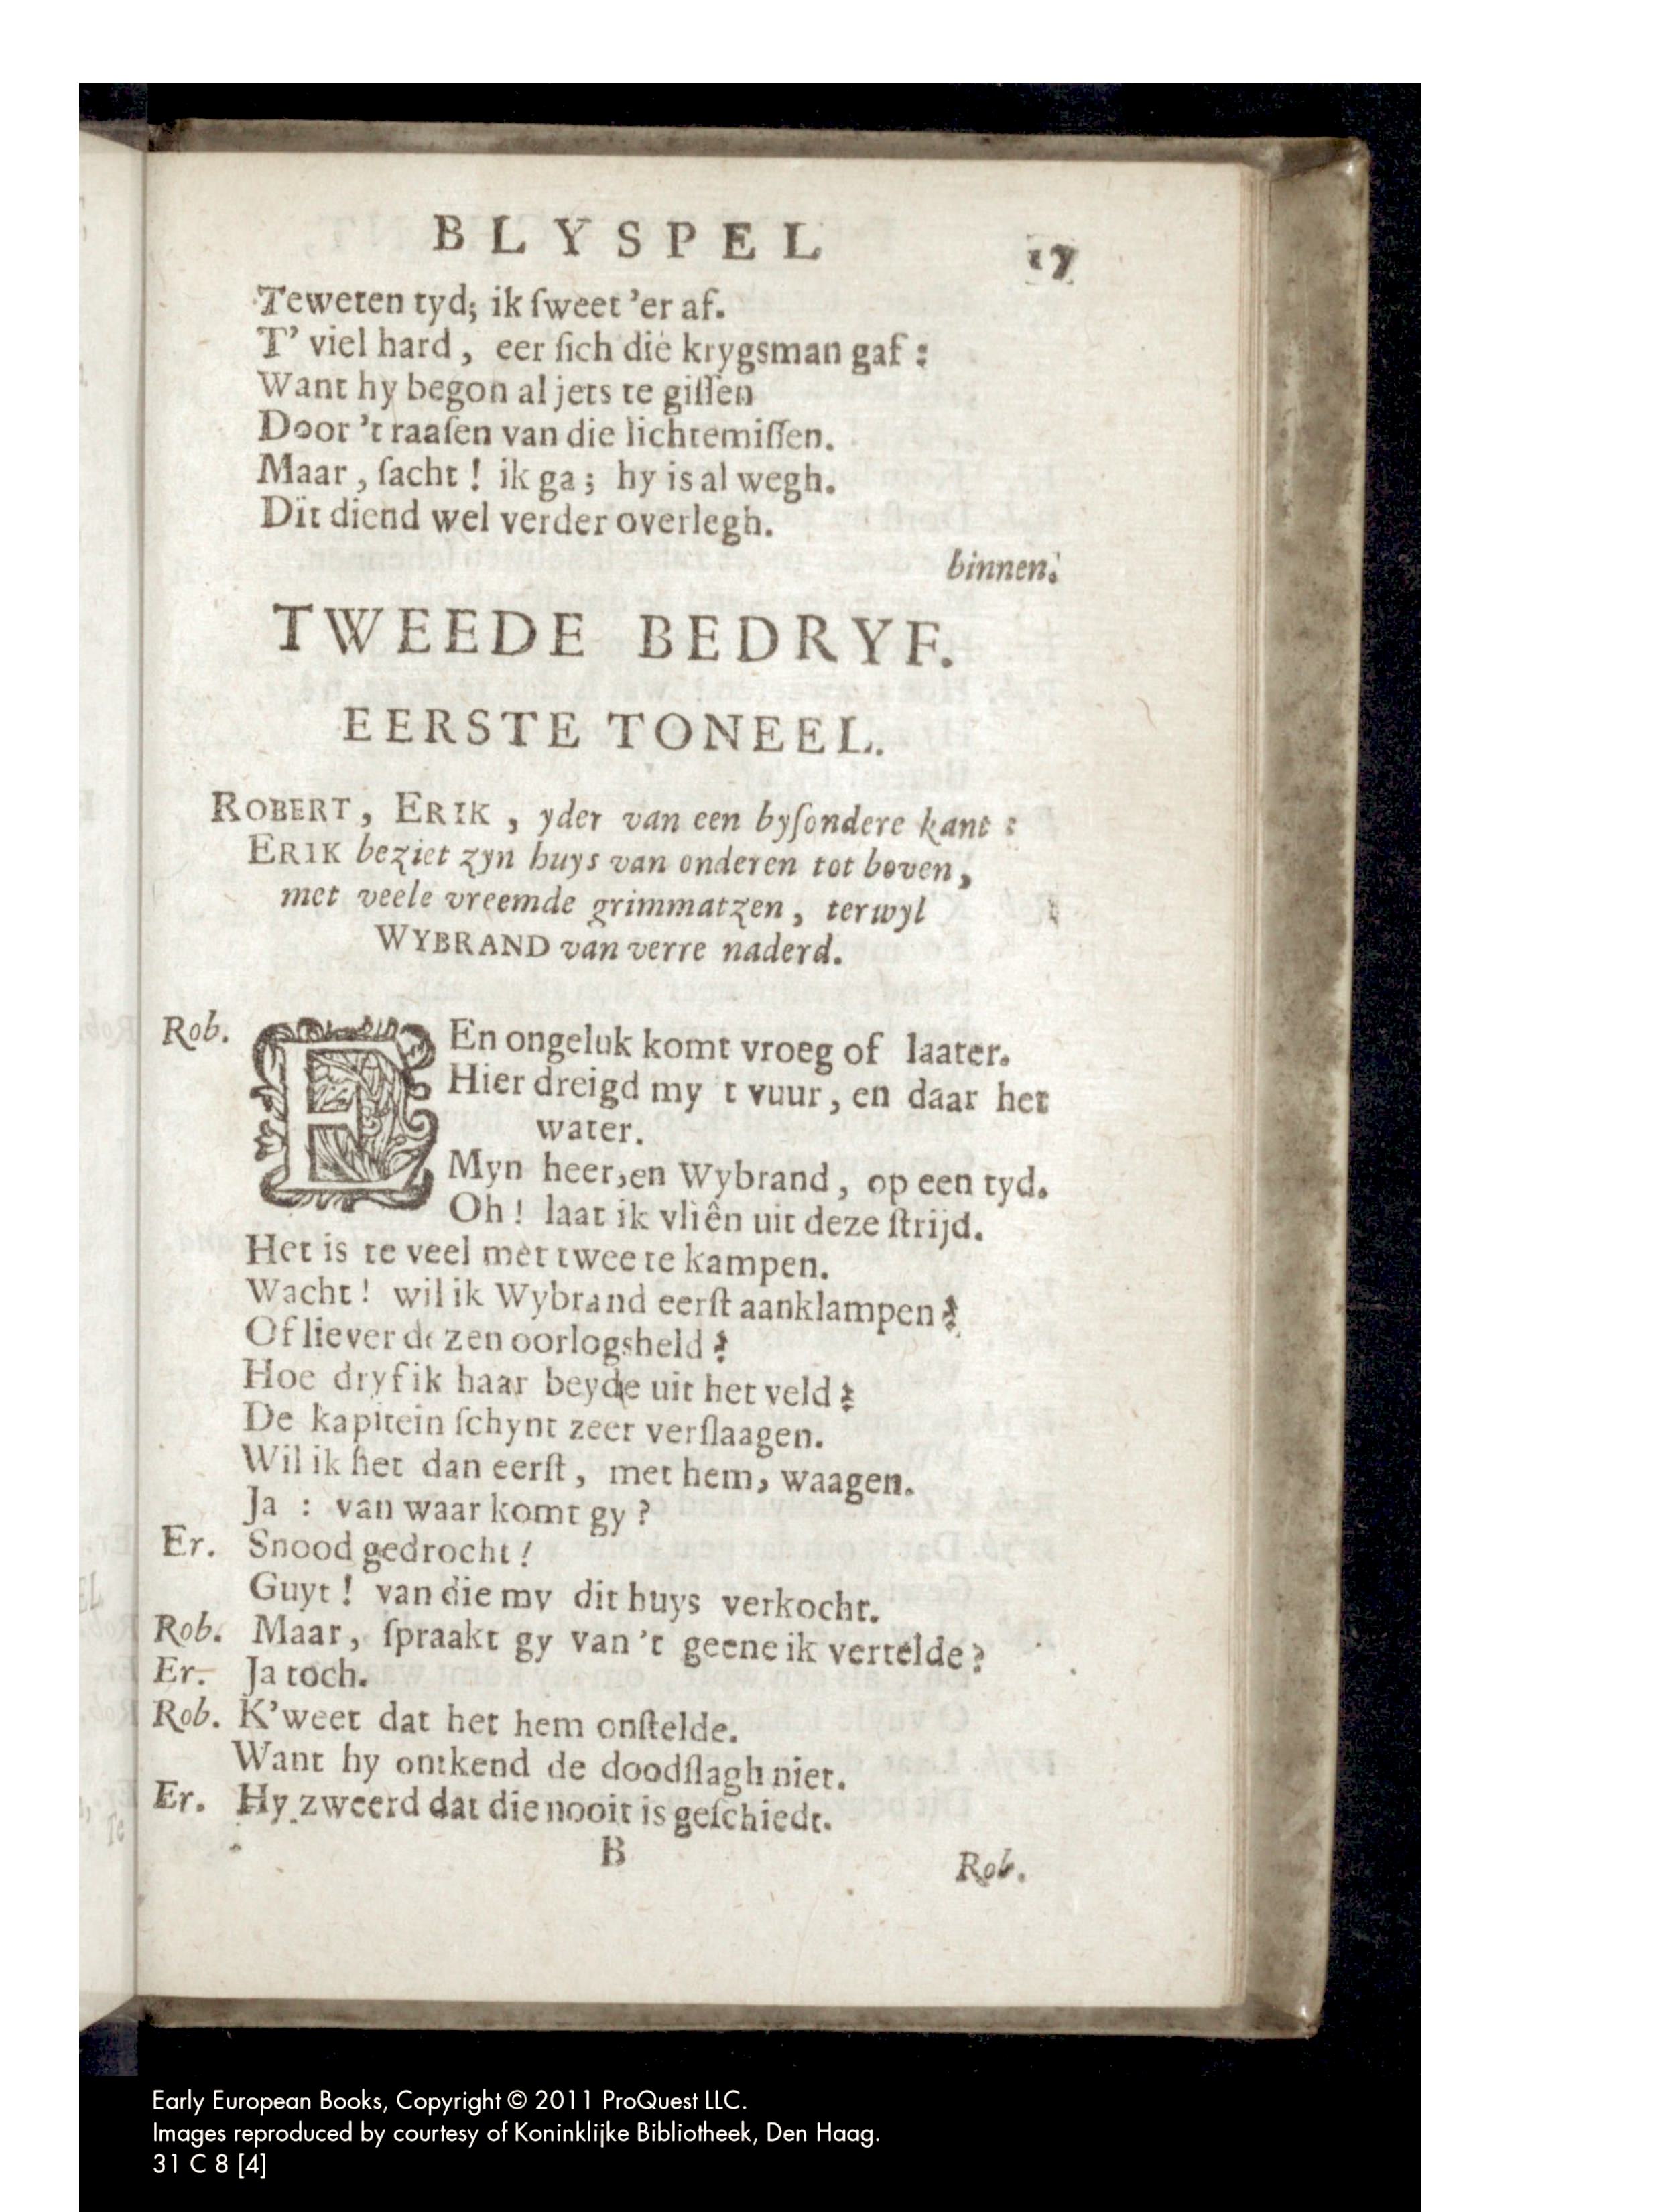 BLYSPEL 17
Teweten tyd; ik ſweet 'er af.
T' viel hard, eer ſich die krygsman gaf:
Want hy begon al jets te giſſen
Door 't raaſen van die lichtemiſſen.
Maar, ſacht! ik ga; hy is al wegh.
Dit diend wel verder overlegh.
binnen.
TWEEDE BEDRYF.
EERSTE TONEEL.
ROBERT, ERIK, yder van een byſondere kant:
ERIK beziet zyn huys van onderen tot boven,
met veele vreemde grimmatzen, terwyl
WYBRAND van verre naderd.
Rob. EEn ongeluk komt vroeg of laater.
Hier dreigd my t vuur, en daar het
water.
Myn heer,en Wybrand, op een tyd.
Oh! laat ik vliên uit deze ſtrijd.
Het is te veel met twee te kampen.
Wacht! wil ik Wybrand eerſt aanklampen?
Of liever dezen oorlogsheld?
Hoe dryf ik haar beyde uit het veld?
De kapitein ſchynt zeer verſlaagen.
Wil ik het dan eerſt, met hem, waagen.
Ja: van waar komt gy?
Er. Snood gedrocht!
Guyt! van die my dit huys verkocht.
Rob. Maar, ſpraakt gy van 't geene ik vertelde?
Er. Ja toch.
Rob. K'weet dat het hem onſtelde.
Want hy ontkend de doodſlagh niet.
Er. Hy zweerd dat die nooit is geſchiedt.
B Rob.
Early European Books, Copyright © 2011 ProQuest LLC.
Images reproduced by courtesy of Koninklijke Bibliotheek, Den Haag.
31 C 8 [4]